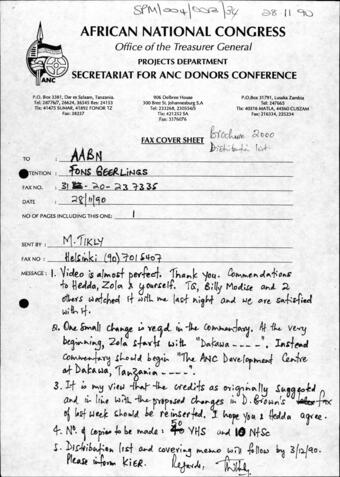 SPM/004/002/34
28.11.90
AFRICAN NATIONAL CONGRESS
Office of the Treasurer General
PROJECTS DEPARTMENT
SECRETARIAT FOR ANC DONORS CONFERENCE
ANC
P.O. Box 2281, Dar es Salaam, Tanzania.
Tel: 2477677, 26624, 36345 Res: 24153
Tlx: 41475 SUMAR, 41892 FONOR TZ
Fax: 38237
906 Oelbree House
300 Bree St. Johannesburg S.A
Tel: 233268, 230554/5
Tlx: 421252 SA
Fax: 3376076
P.O.Box 31791, Lusaka Zambia
Tel: 247665
Tlx: 40216 MATLA, 44560 CUZZAM
Fax: 216334, 225234
FAX COVER SHEET
Brochure 2000
Distribution list
TO AABN
ATTENTION : FONS GEERLINGS
FAX NO. 31-20-237335
DATE 28/11/90
NO OF PAGES INCLUDING THIS ONE: 1
SENT BY : M. TIKLY
FAX NO : Helsinki (90) 7015407
MESSAGE : 1. Video is almost perfect. Thank you. Commendations
to Hedda, Zola & yourself. TG, Billy Modise and 2
others watched it with me last night and we are satisfied
with it.
2. One small change is reqd. in the commentary. At the very
beginning, Zola starts with "Dakawa ----". Instead
commentary should begin "The ANC Development Centre
at Dakawa, Tanzania ----".
3. It is my view that the credits as originally suggested
and in line with the proposed changes in D. Brown's fax
of last week should be reinserted. I hope you & Hedda agree.
4. No. of copies to be made: 50 VHS and 10 NTSC
5. Distribution list and covering memo will follow by 3/12/90.
Please inform KIER. Regards,